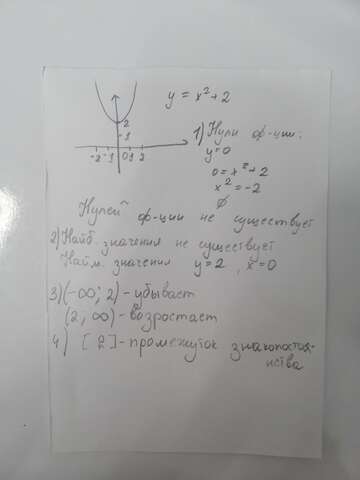 y = x² + 2
2
1
-2 -1 0 1 2
1) Нули ф-ции:
y=0
0 = x² + 2
x² = -2
∅
Нулей ф-ции не существует
2) Наиб. значения не существует
Найм. значения y=2, x=0
3) (-∞; 2) - убывает
(2; ∞) - возростает
4) [ 2 ] - промежуток знакопостоя-
нства